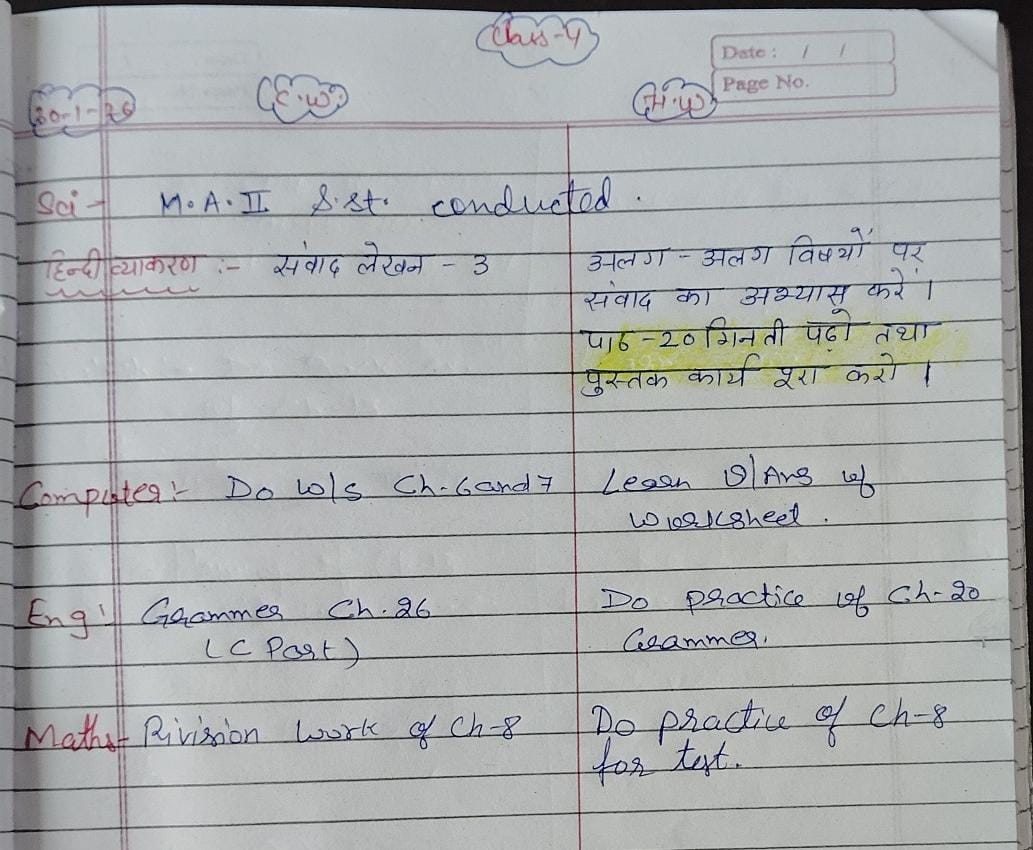 Class-4
Date : / /
Page No.
30-1-26 C.W. H.W
Sci- M.A.II S.st. conducted.
हिन्दी व्याकरण :- संवाद लेखन - 3 अलग - अलग विषयों पर
संवाद का अभ्यास करें ।
पाठ -20 गिनती पढ़ो तथा
पुस्तक कार्य पूरा करो ।
Computer:- Do w/s Ch-6 and 7 Learn Q/Ans of
worksheet.
Eng: Grammer Ch. 26 Do practice of Ch-20
(C Part) Grammer.
Maths- Rivision work of Ch-8 Do practice of Ch-8
for test.